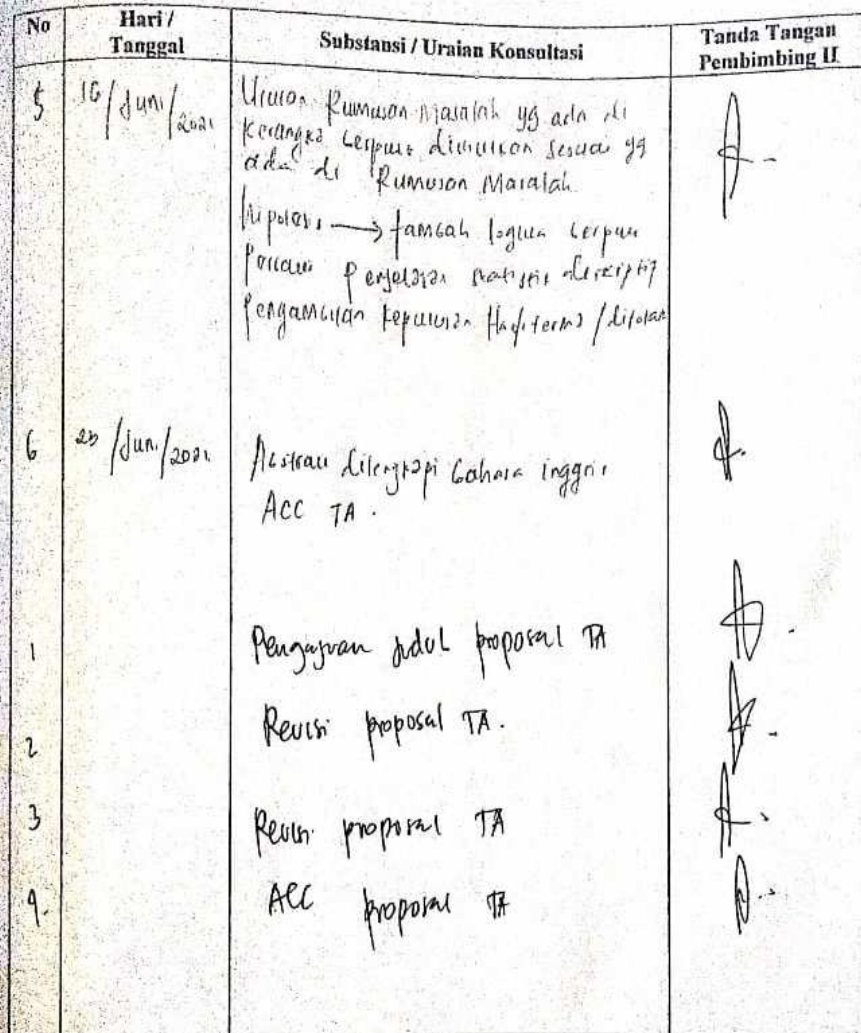 No
Hari / Tanggal
Substansi / Uraian Konsultasi
Tanda Tangan Pembimbing II
5
16 / Juni / 2021
Urutan Rumusan Masalah yg ada di
Kerangka berpikir diurutkan sesuai yg
ada di Rumusan Masalah
Hipotesis → tambah berpikir
Penjelasan statistik deskriptif
Pengambilan keputusan diterima / ditolak
6
/ Jun. / 2021
Abstrak dilengkapi bahasa inggris
ACC TA.
1
Pengajuan judul proposal TA
2
Revisi proposal TA.
3
Revisi proposal TA
ACC proposal TA